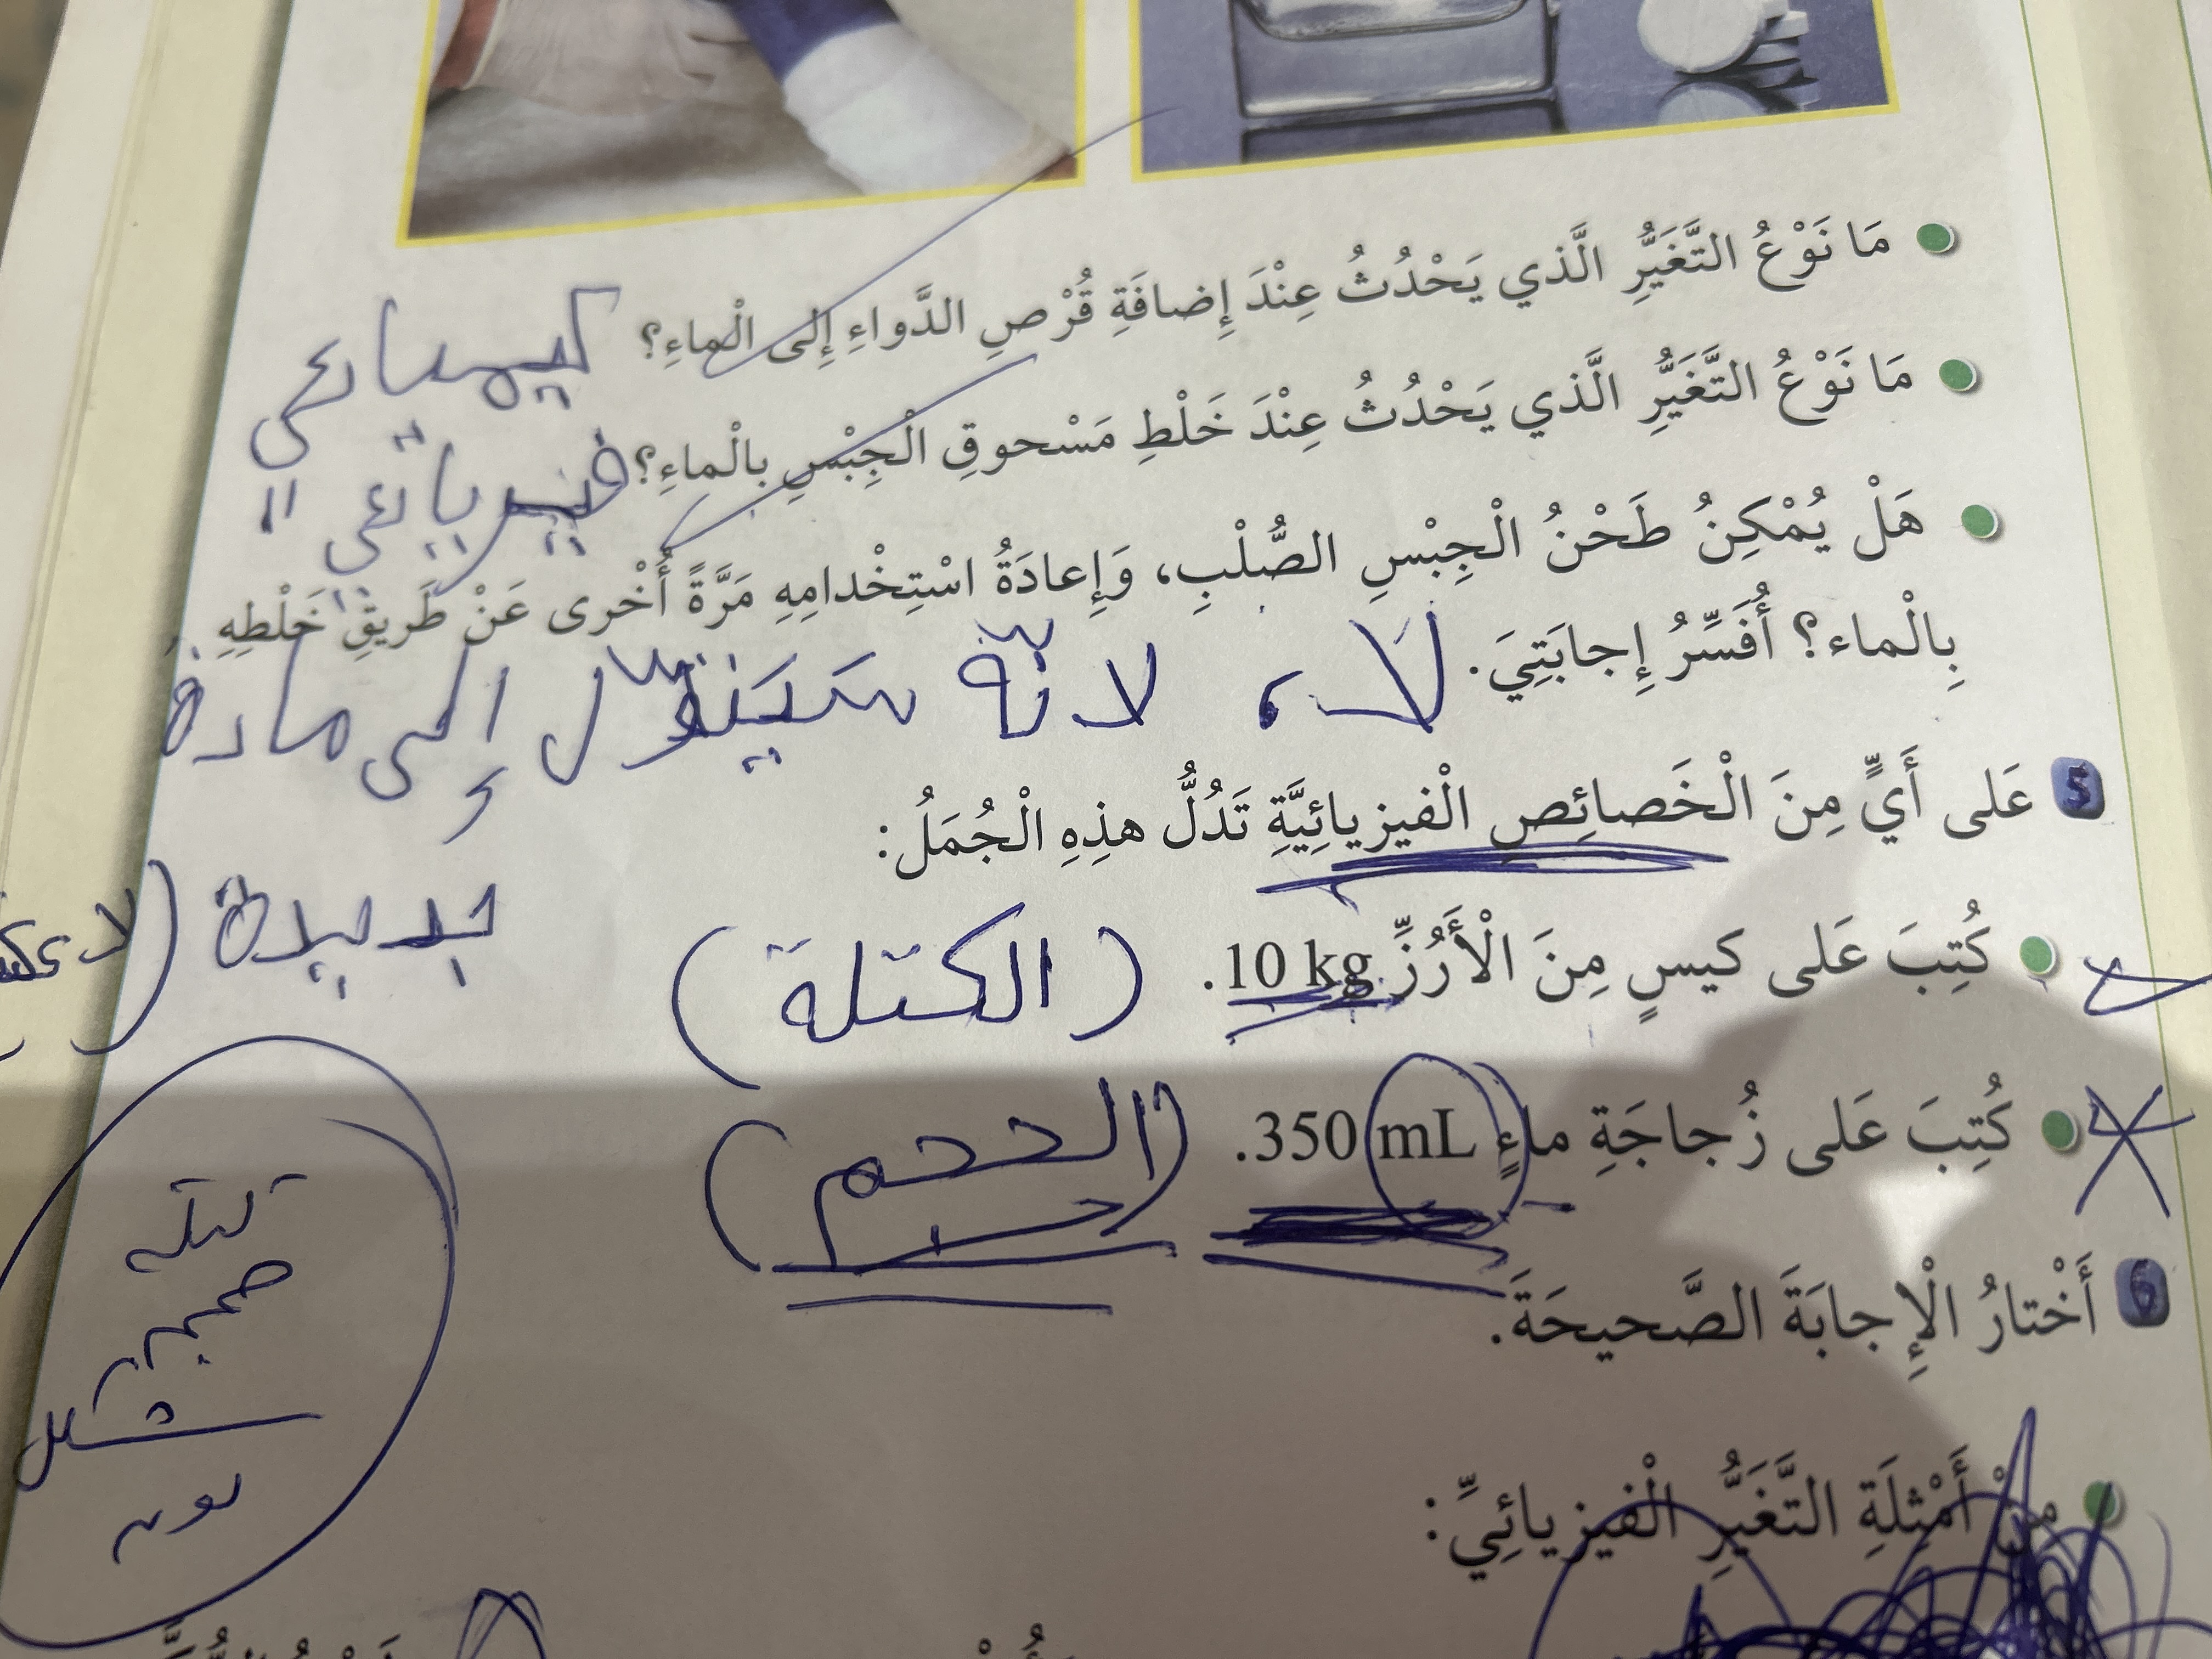 مَا نَوْعُ التَّغَيُّرِ الَّذي يَحْدُثُ عِنْدَ إِضافَةِ قُرْصِ الدَّواءِ إِلى الْماءِ؟ كيميائي
مَا نَوْعُ التَّغَيُّرِ الَّذي يَحْدُثُ عِنْدَ خَلْطِ مَسْحوقِ الْجِبْسِ بِالْماءِ؟ فيزيائي
هَلْ يُمْكِنُ طَحْنُ الْجِبْسِ الصُّلْبِ، وَإِعادَةُ اسْتِخْدامِهِ مَرَّةً أُخْرى عَنْ طَريقِ خَلْطِهِ
بِالْماء؟ أُفَسِّرُ إِجابَتِيَ. لا، لانّه إلى مادة
جديدة
5 عَلى أَيٍّ مِنَ الْخَصائِصِ الْفيزيائِيَّةِ تَدُلُّ هذِهِ الْجُمَلُ:
كُتِبَ عَلى كيسٍ مِنَ الْأَرُزِّ 10 kg. (الكتلة)
كُتِبَ عَلى زُجاجَةِ ماءٍ 350 mL. (الحجم)
6 أَخْتارُ الْإِجابَةَ الصَّحيحَةَ.
مِنْ أَمْثِلَةِ التَّغَيُّرِ الْفيزيائِيِّ:
كتلة
حجم
شكل
لون